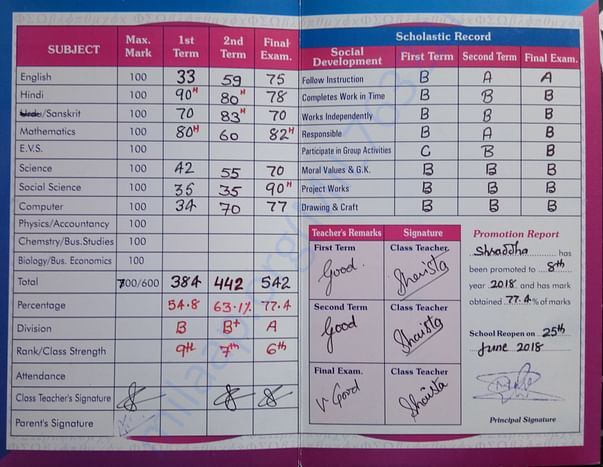 SUBJECT Max. Mark 1st Term 2nd Term Final Exam.
English 100 33 59 75
Hindi 100 90H 80H 78
Urdu/Sanskrit 100 70 83H 70
Mathematics 100 80H 60 82H
E.V.S. 100
Science 100 42 55 70
Social Science 100 35 35 90H
Computer 100 34 70 77
Physics/Accountancy 100
Chemistry/Bus.Studies 100
Biology/Bus. Economics 100
Total 700/600 384 442 542
Percentage 54.8 63.1% 77.4
Division B B+ A
Rank/Class Strength 9th 7th 6th
Attendance
Class Teacher's Signature
Parent's Signature
Scholastic Record
Social Development First Term Second Term Final Exam.
Follow Instruction B A A
Completes Work in Time B B B
Works Independently B B B
Responsible B A B
Participate in Group Activities C B B
Moral Values & G.K. B B B
Project Works B B B
Drawing & Craft B B B
Teacher's Remarks Signature
First Term Class Teacher
Good. Shaista
Second Term Class Teacher
Good Shaista
Final Exam. Class Teacher
V Good Shaista
Promotion Report
Shraddha has
been promoted to 8th
year 2018 and has mark
obtained 77.4 % of marks
School Reopen on 25th
June 2018
Principal Signature